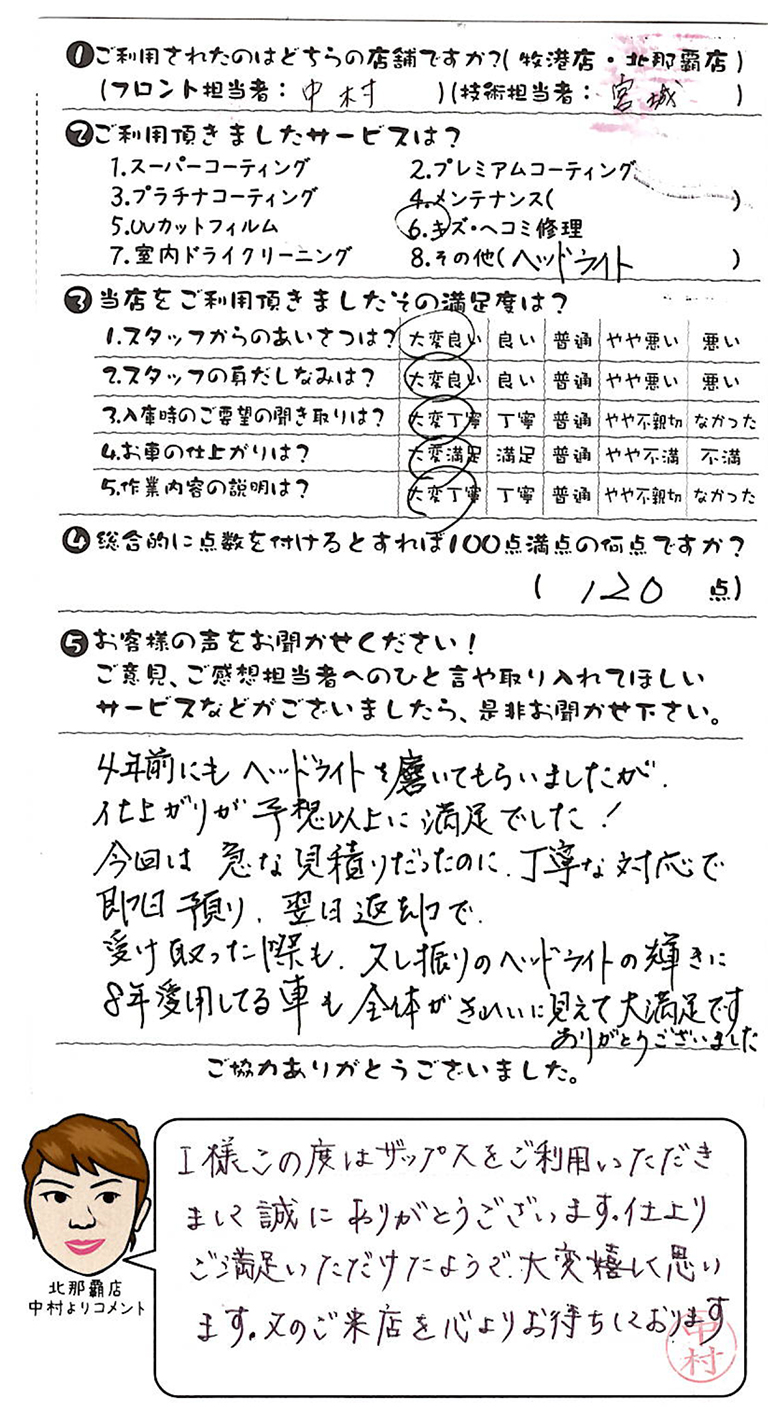 ❶ご利用されたのはどちらの店舗ですか?(牧港店・北那覇店)
(フロント担当者: 中村 )(技術担当者: 宮城 )
❷ご利用頂きましたサービスは?
1.スーパーコーティング 2.プレミアムコーティング
3.プラチナコーティング 4.メンテナンス( )
5.UVカットフィルム 6.キズ・ヘコミ修理
7.室内ドライクリーニング 8.その他(ヘッドライト )
❸当店をご利用頂きましたその満足度は?
1.スタッフからのあいさつは? 大変良い 良い 普通 やや悪い 悪い
2.スタッフの身だしなみは? 大変良い 良い 普通 やや悪い 悪い
3.入庫時のご要望の聞き取りは? 大変丁寧 丁寧 普通 やや不親切 なかった
4.お車の仕上がりは? 大変満足 満足 普通 やや不満 不満
5.作業内容の説明は? 大変丁寧 丁寧 普通 やや不親切 なかった
❹総合的に点数を付けるとすれば100点満点の何点ですか?
( 120 点)
❺お客様の声をお聞かせください!
ご意見、ご感想担当者へのひと言や取り入れてほしい
サービスなどがございましたら、是非お聞かせ下さい。
4年前にもヘッドライトを磨いてもらいましたが、
仕上がりが予想以上に満足でした!
今回は急な見積りだったのに、丁寧な対応で
即日預り、翌日返却で、
受け取った際も、久し振りのヘッドライトの輝きに
8年愛用してる車も全体がきれいに見えて大満足です
ありがとうございました
ご協力ありがとうございました。
I様、この度はザップスをご利用いただき
まして誠にありがとうございます。仕上り
ご満足いただけたようで、大変嬉しく思い
ます。又のご来店を心よりお待ちしております
中村
北那覇店
中村よりコメント